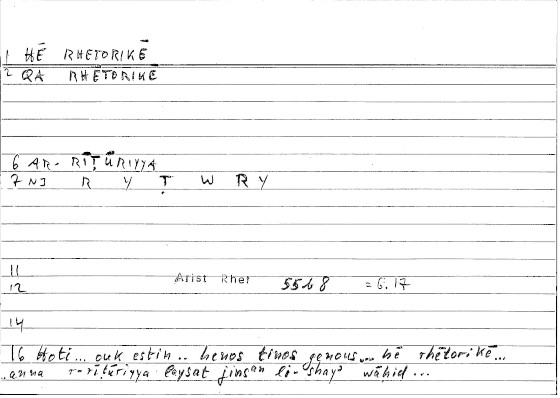 1 HĒ RHETORIKĒ
2 QA RHĒTORIKĒ
6 AR- RĪṬŪRIYYA
7 NI R Y Ṭ W R Y
11
12 Arist Rhet 55b8 = 6.17
14
16 Hoti... ouk estin.. henos tinos genous... hē rhētorikē...
anna r-rīṭūriyya laysat jinsan li-shayʾ wāḥid...